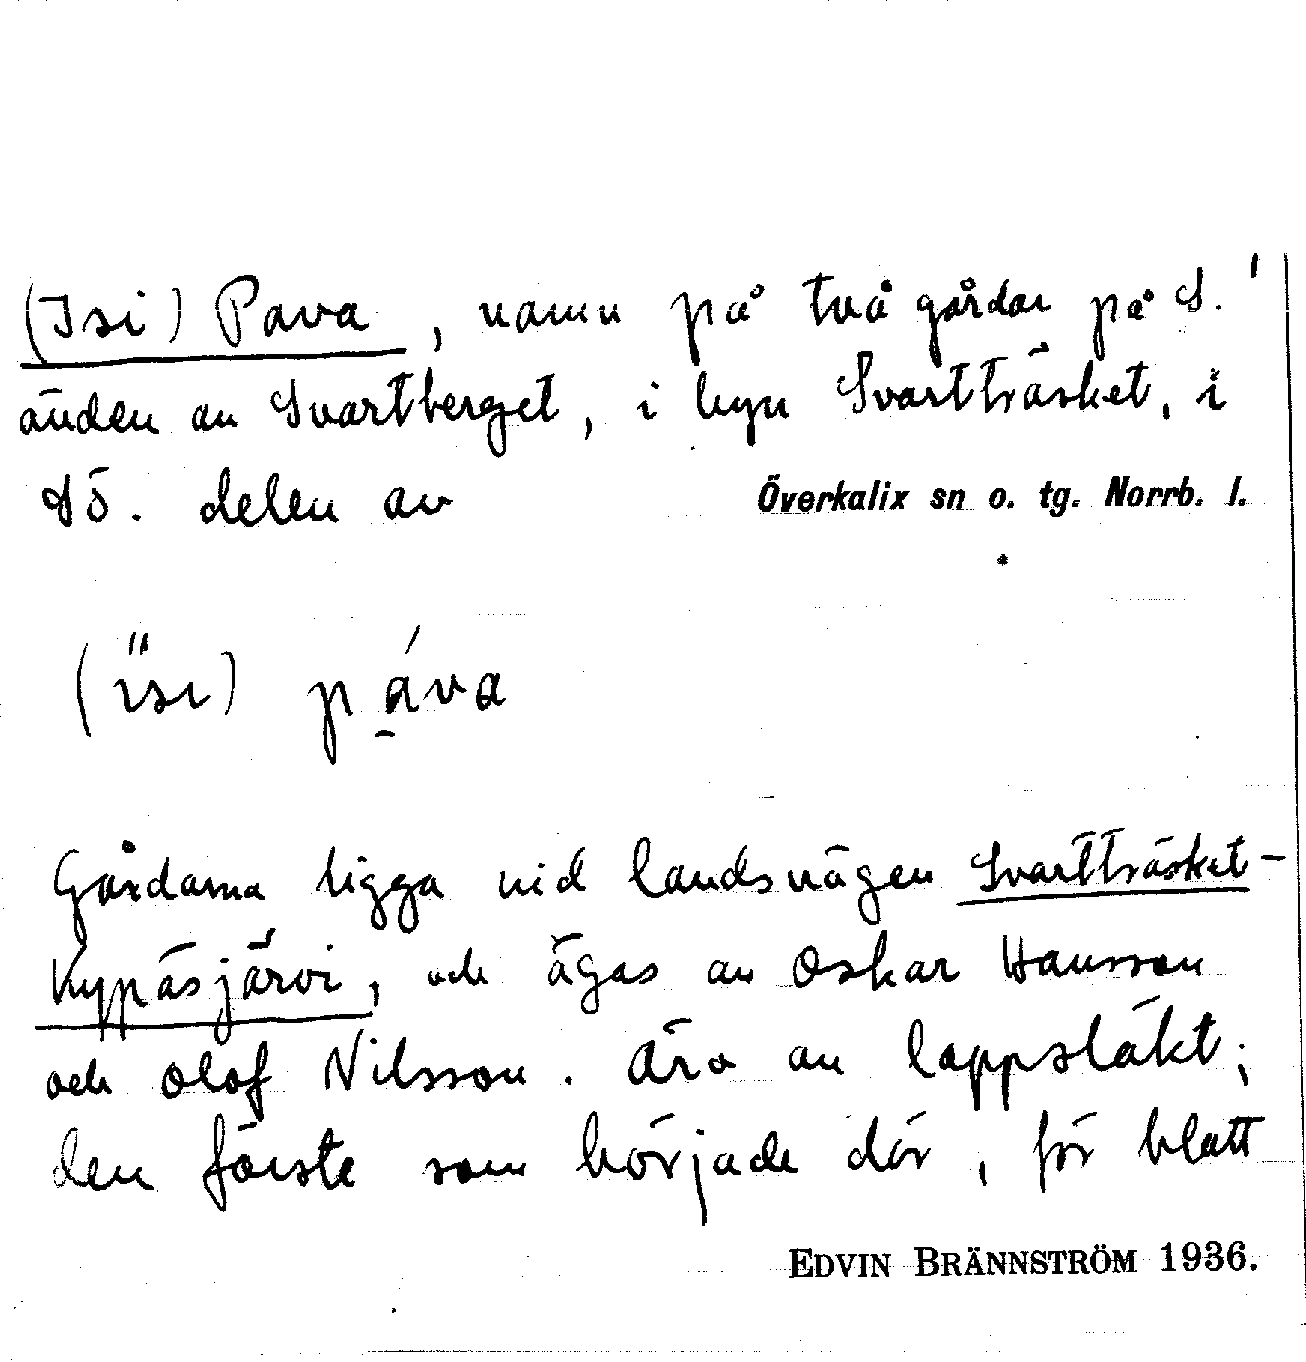 (Isi) Pava, namn på två gårdar på S.
änden av Svartberget, i byn Svartträsket, i
sö. delen av Överkalix sn o. tg. Norrb. l.
(ïsi) páva
Gårdarna ligga vid landsvägen Svartträsket-
Kypäsjärvi, och ägas av Oskar Hansson
och Olof Nilsson. Äro av lappsläkt;
den förste som började där, för blott
EDVIN BRÄNNSTRÖM 1936.